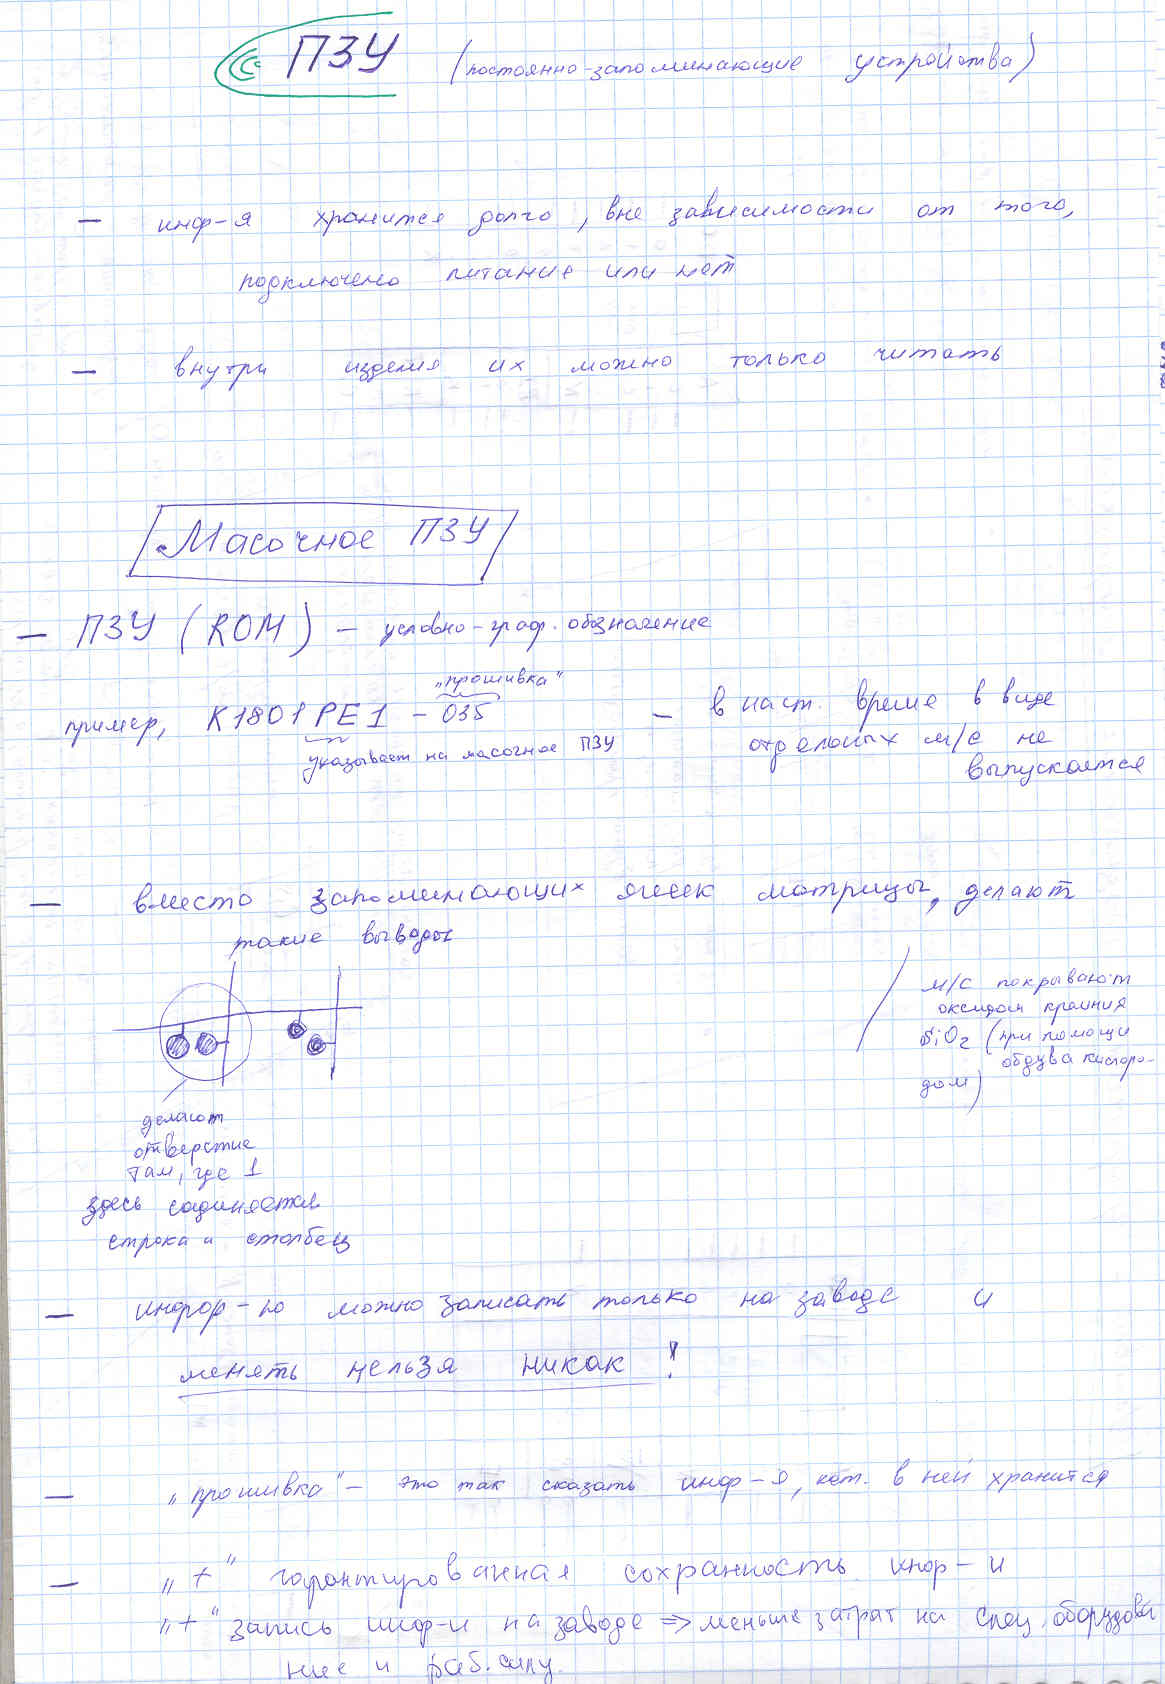 ПЗУ (постоянно-запоминающие устройства)
— инф-я хранится долго, вне зависимости от того,
подключено питание или нет
— внутри изделия их можно только читать
Масочное ПЗУ
— ПЗУ (ROM) — условно-граф. обозначение
„прошивка"
пример, К1801РЕ1 – 035
указывает на масочное ПЗУ
— в наст. время в виде
отдельных м/с не
выпускается
— вместо запоминающих ячеек матрицы, делают
такие выводы
м/с покрывают
оксидом кремния
SiO₂ (при помощи
обдува кислоро-
дом)
делают
отверстие
там, где 1
здесь соединяется
строка и столбец
— инфор-ю можно записать только на заводе и
менять нельзя никак!
— „прошивка" – это так сказать инф-я, кот. в ней хранится
— „+" гарантированная сохранность инф-и
„+" запись инф-и на заводе => меньше затрат на спец. оборудова
ние и раб. силу.